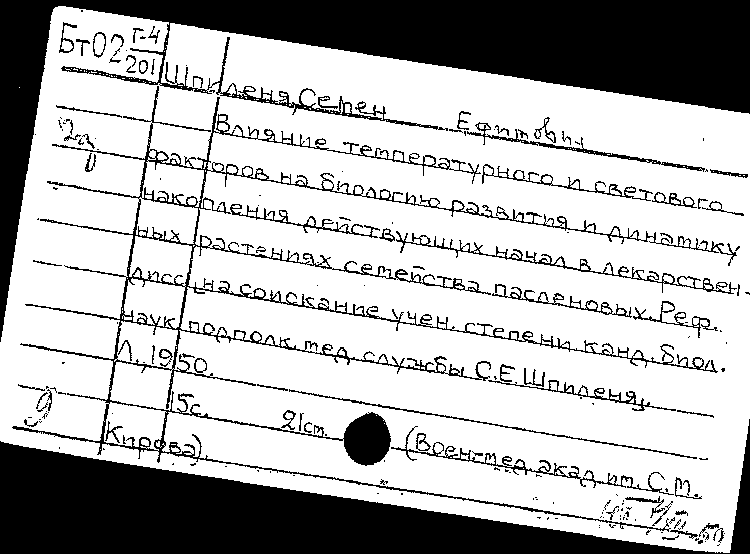 Бт02 Г-4
201
Шпиленя, Семен Ефимович
Влияние температурного и светового
факторов на биологию развития и динамику
накопления действующих начал в лекарствен-
ных растениях семейства пасленовых. Реф.
дисс. на соискание учен. степени канд. биол.
наук подполк. мед. службы С.Е. Шпиленя.
Л., 1950.
15с. 21см. (Воен-мед. акад. им. С.М.
Кирова).
9